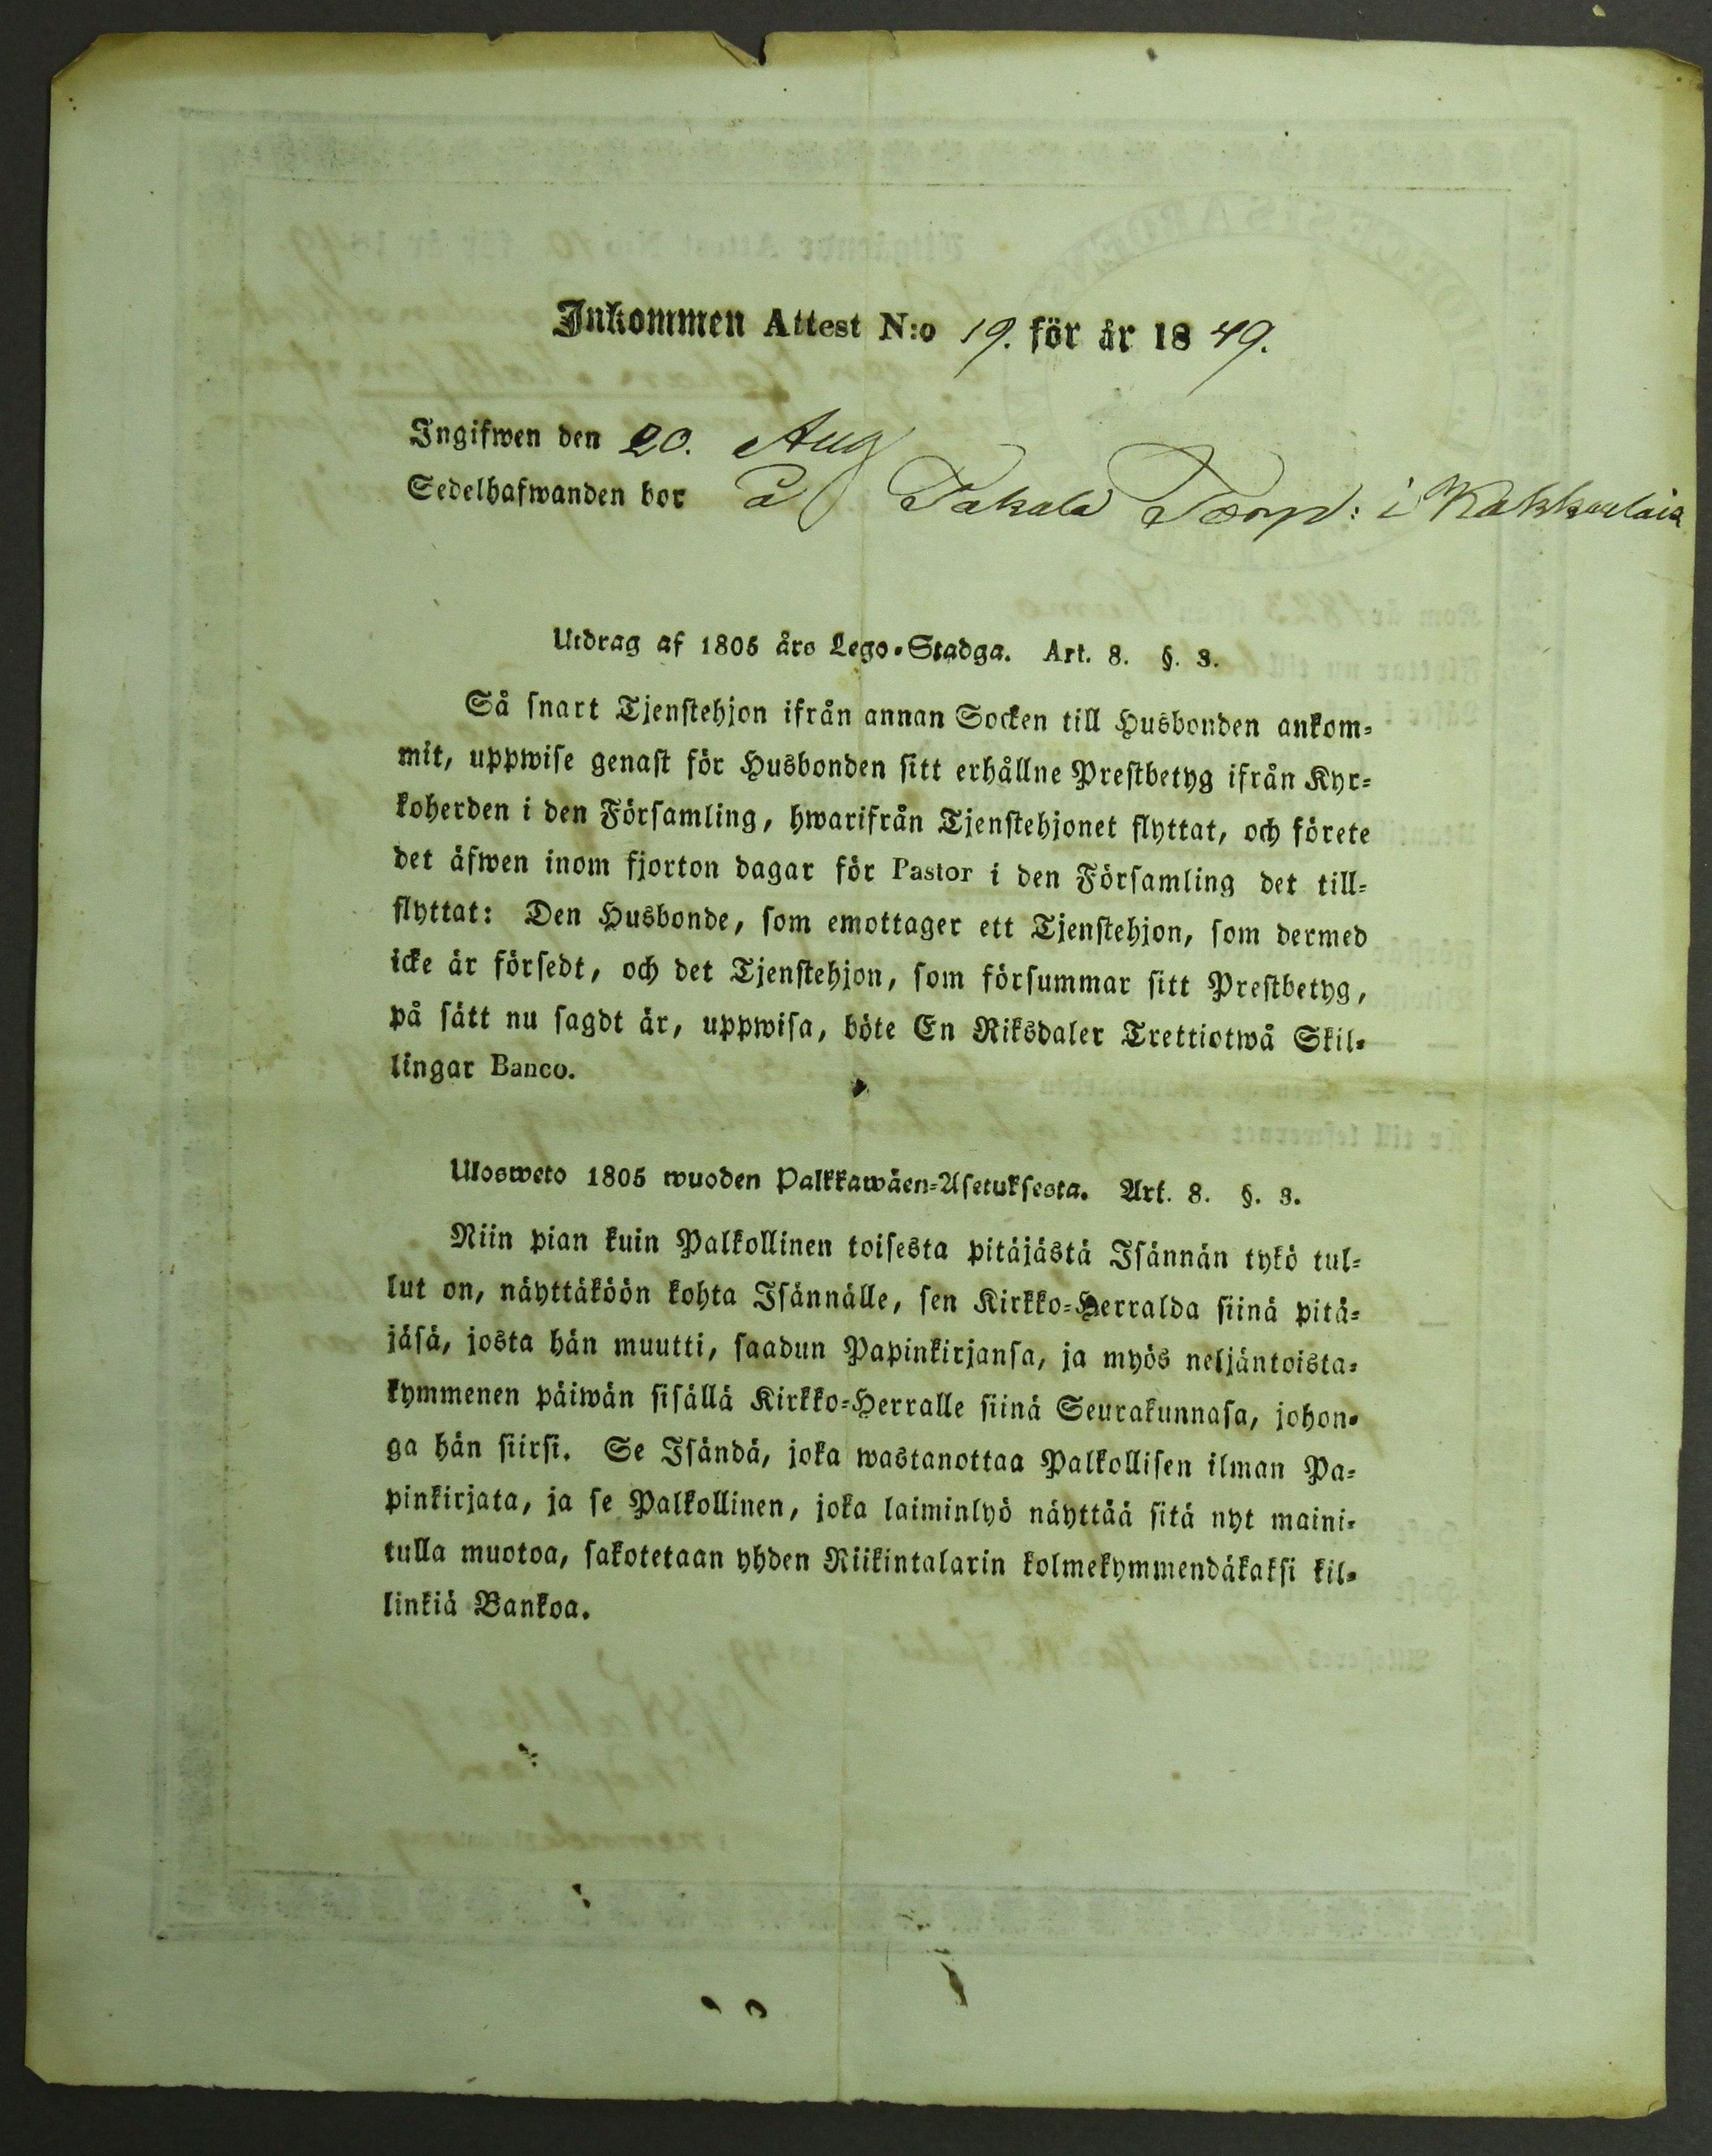 Inkommen Attest N:o 19. för år 1849.
Ingifwen den 20. Aug
Sedelhafwanden bor å Takala Torp: i Kakkulais
Utdrag af 1805 års Lego-Stadga. Art. 8. §. 3.
Så snart Tjenstehjon ifrån annan Socken till Husbonden ankom-
mit, uppwise genast för Husbonden sitt erhållne Prestbetyg ifrån Kyr-
koherden i den Församling, hwarifrån Tjenstehjonet flyttat, och förete
det äfwen inom fjorton dagar för Pastor i den Församling det till-
flyttat: Den Husbonde, som emottager ett Tjenstehjon, som dermed
icke är försedt, och det Tjenstehjon, som försummar sitt Prestbetyg,
på sätt nu sagdt är, uppwisa, böte En Riksdaler Trettiotwå Skil-
lingar Banco.
Ulosweto 1805 wuoden Palkkawäen-Asetuksesta. Art. 8. §. 3.
Niin pian kuin Palkollinen toisesta pitäjästä Isännän tykö tul-
lut on, näyttäköön kohta Isännälle, sen Kirkko-Herralda siinä pitä-
jäsä, josta hän muutti, saadun Papinkirjansa, ja myös neljäntoista-
kymmenen päiwän sisällä Kirkko-Herralle siinä Seurakunnasa, johon-
ga hän siirsi. Se Isändä, joka wastanottaa Palkollisen ilman Pa-
pinkirjata, ja se Palkollinen, joka laiminlyö näyttää sitä nyt maini-
tulla muotoa, sakotetaan yhden Riikintalarin kolmekymmendäkaksi kil-
linkiä Bankoa.